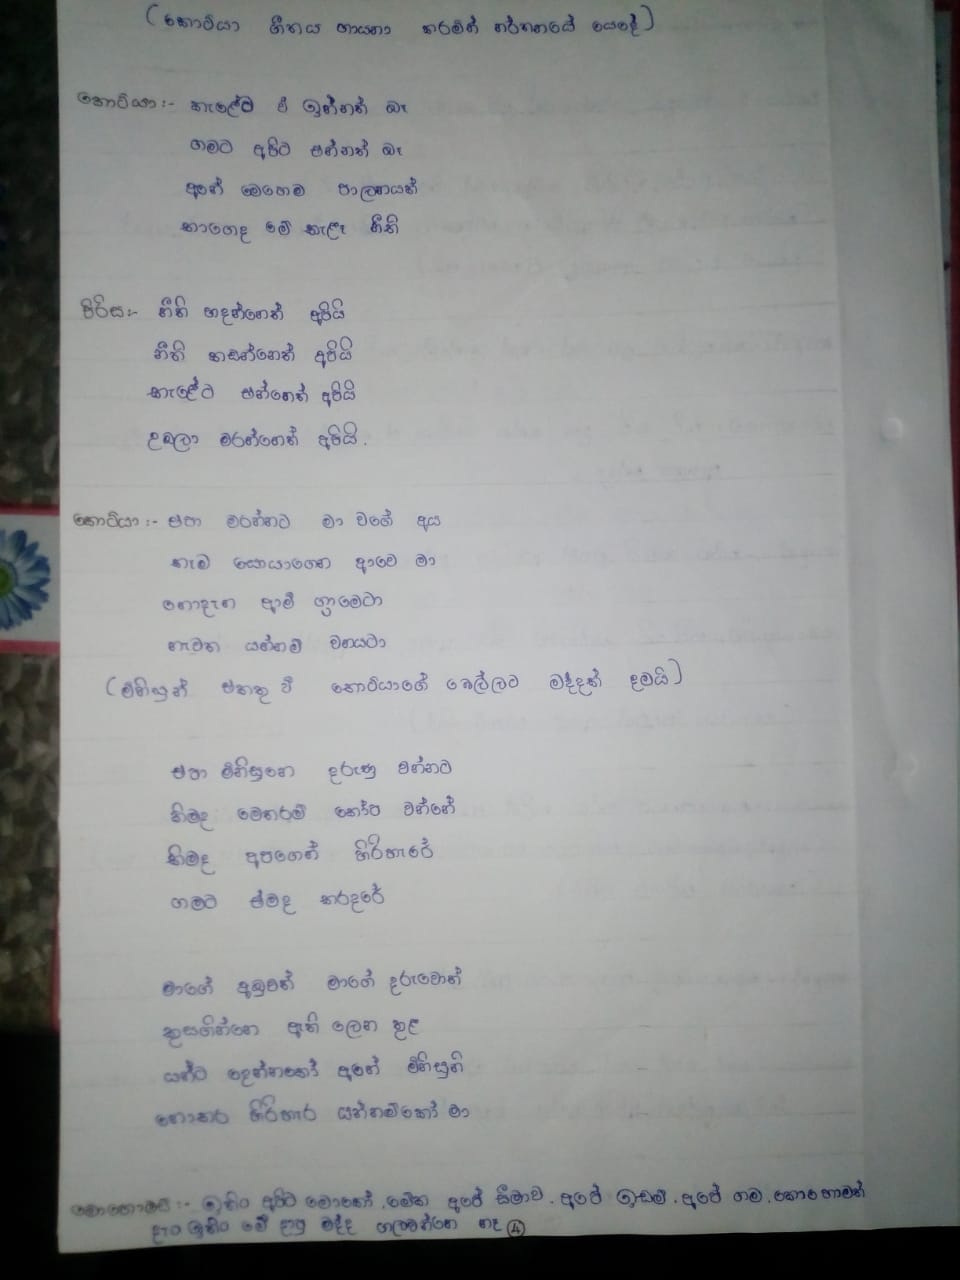 (කොටියා ගීතය ගායනා කරමින් නර්තනයේ යෙදේ)
කොටියා:- කැලේට වී ඉන්නත් බෑ
ගමට අපිට එන්නත් බෑ
අනේ මෙහෙම පාලනයක්
කාගෙද මේ කැලෑ නීති
පිරිස:- නීති හදන්නෙත් අපියි
නීති කඩන්නෙත් අපියි
කැලේට එන්නෙත් අපියි
උඹලා මරන්නෙත් අපියි.
කොටියා:- එපා මරන්නට මා වගේ අය
කෑම සොයාගෙන ආවෙ මා
නොදැන ආමි ග්‍රාමෙටා
නැවත යන්නම් වනයටා
(මිනිසුන් එකතු වී කොටියාගේ බෙල්ලට මද්දක් දමයි)
එපා මිනිසුනෙ දරුණු වන්නට
කිමද මෙතරම් කෝප වන්නේ
කිමද අපගෙන් හිරිහැරේ
ගමට එමද කරදරේ
මාගේ අඹුවත් මාගේ දරුවොත්
කුසගින්නෙ ඇති ලෙන තුළ
යන්ට දෙන්නකෝ අනේ මිනිසුනි
නොකර හිරිහැර යන්නම්කෝ මා
ඉතිං අපිට මොකෝ. මේක අපේ සීමාව. අපේ ඉඩම්. අපේ ගම. කොහොමත්
දැං ඉතිං මේ දාපු මද්ද ගලවන්නෙ නෑ ④